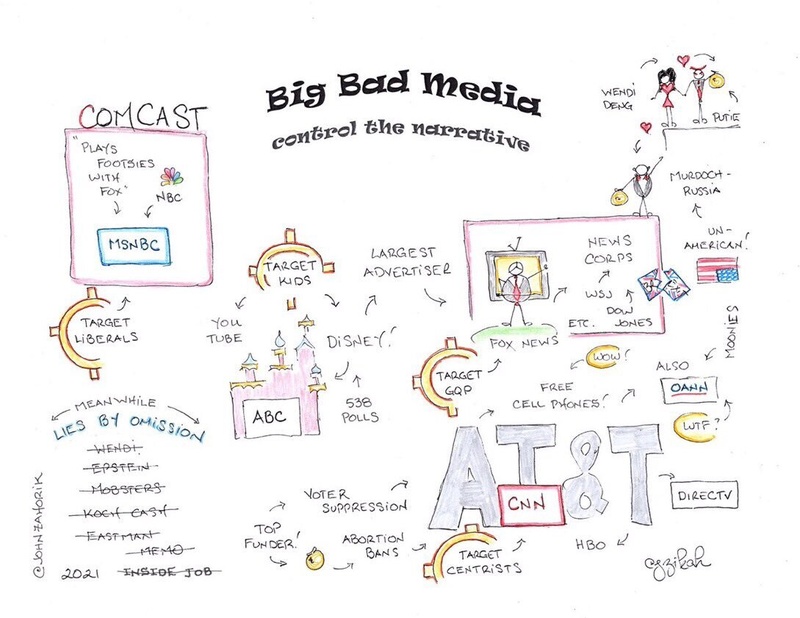 Big Bad Media
control the narrative
COMCAST
"PLAYS
FOOTSIES
WITH
FOX"
NBC
MSNBC
TARGET
LIBERALS
TARGET
KIDS
YOU
TUBE
DISNEY!
ABC
538
POLLS
LARGEST
ADVERTISER
WENDI
DENG
PUTIE
MURDOCH-
RUSSIA
UN-
AMERICAN!
NEWS
CORPS
WSJ
DOW
JONES
ETC.
FOX NEWS
TARGET
GQP
WOW!
FREE
CELL PHONES!
MOONIES
ALSO
OANN
WTF?
AT&T
CNN
DIRECTV
HBO
TARGET
CENTRISTS
VOTER
SUPPRESSION
TOP
FUNDER!
ABORTION
BANS
MEANWHILE
LIES BY OMISSION
WENDI
EPSTEIN
MOBSTERS
KOCH CASH
EASTMAN
MEMO
2021 INSIDE JOB
@JOHNZAHORIK